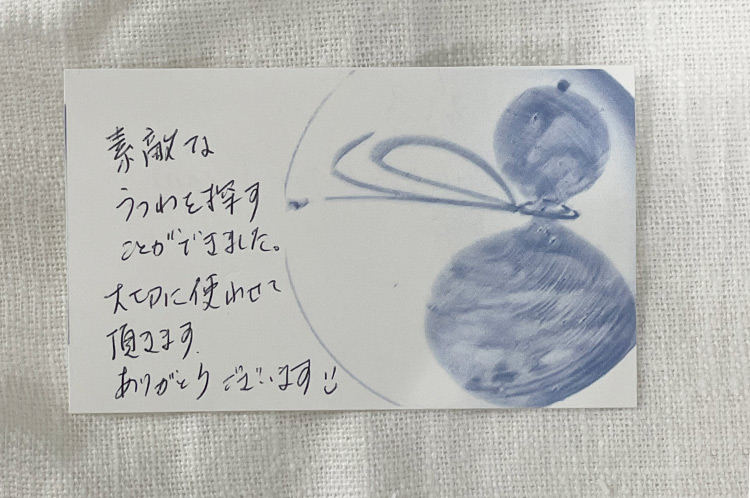 素敵な
うつわを探す
ことができました。
大切に使わせて
頂きます.
ありがとうございます!!